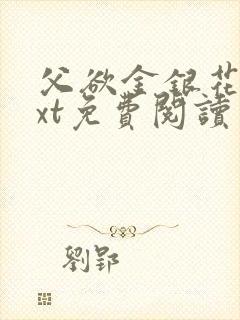 父欲金銀花
xt免費閱讀
劉郢